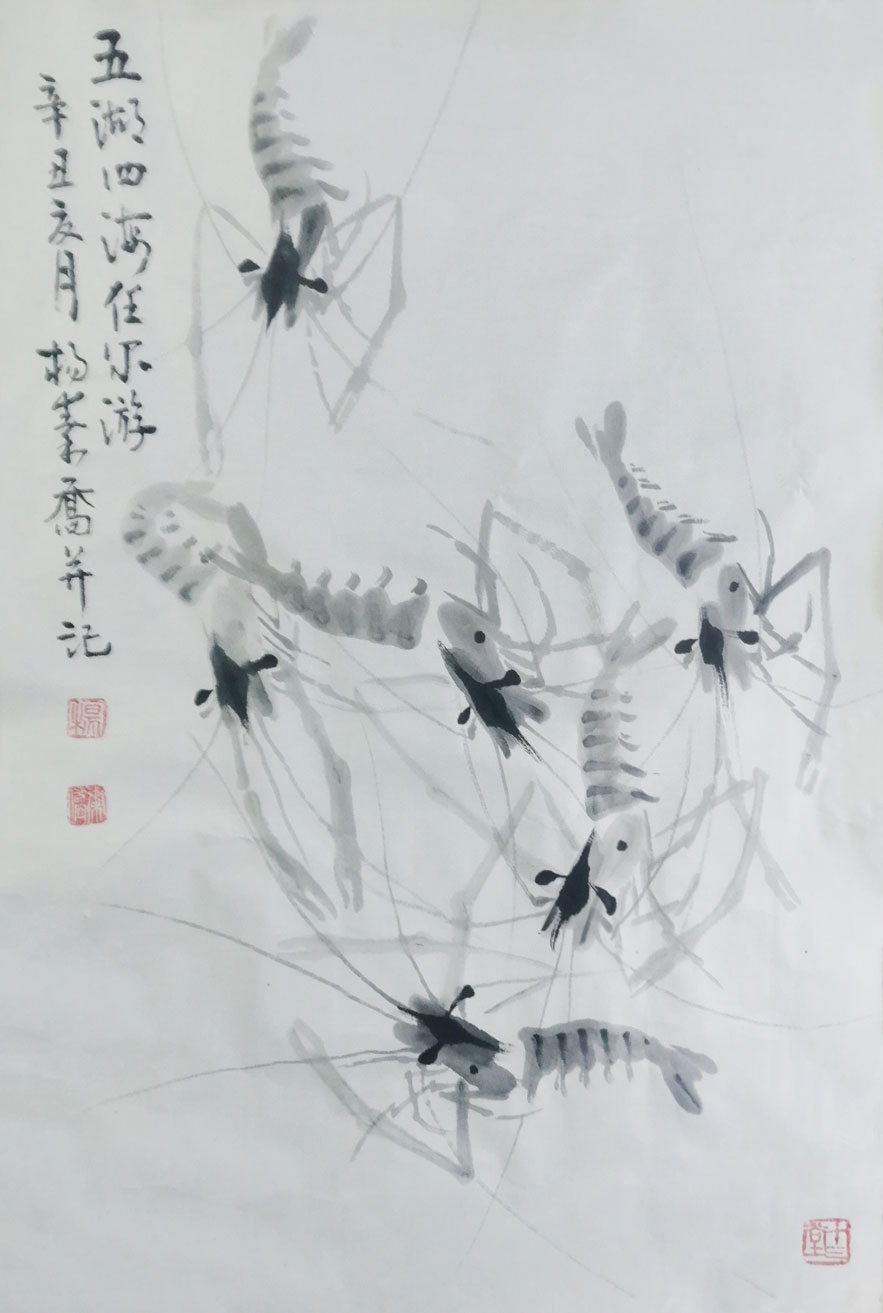 五湖四海任尔游
辛丑亥月杨素乔并记